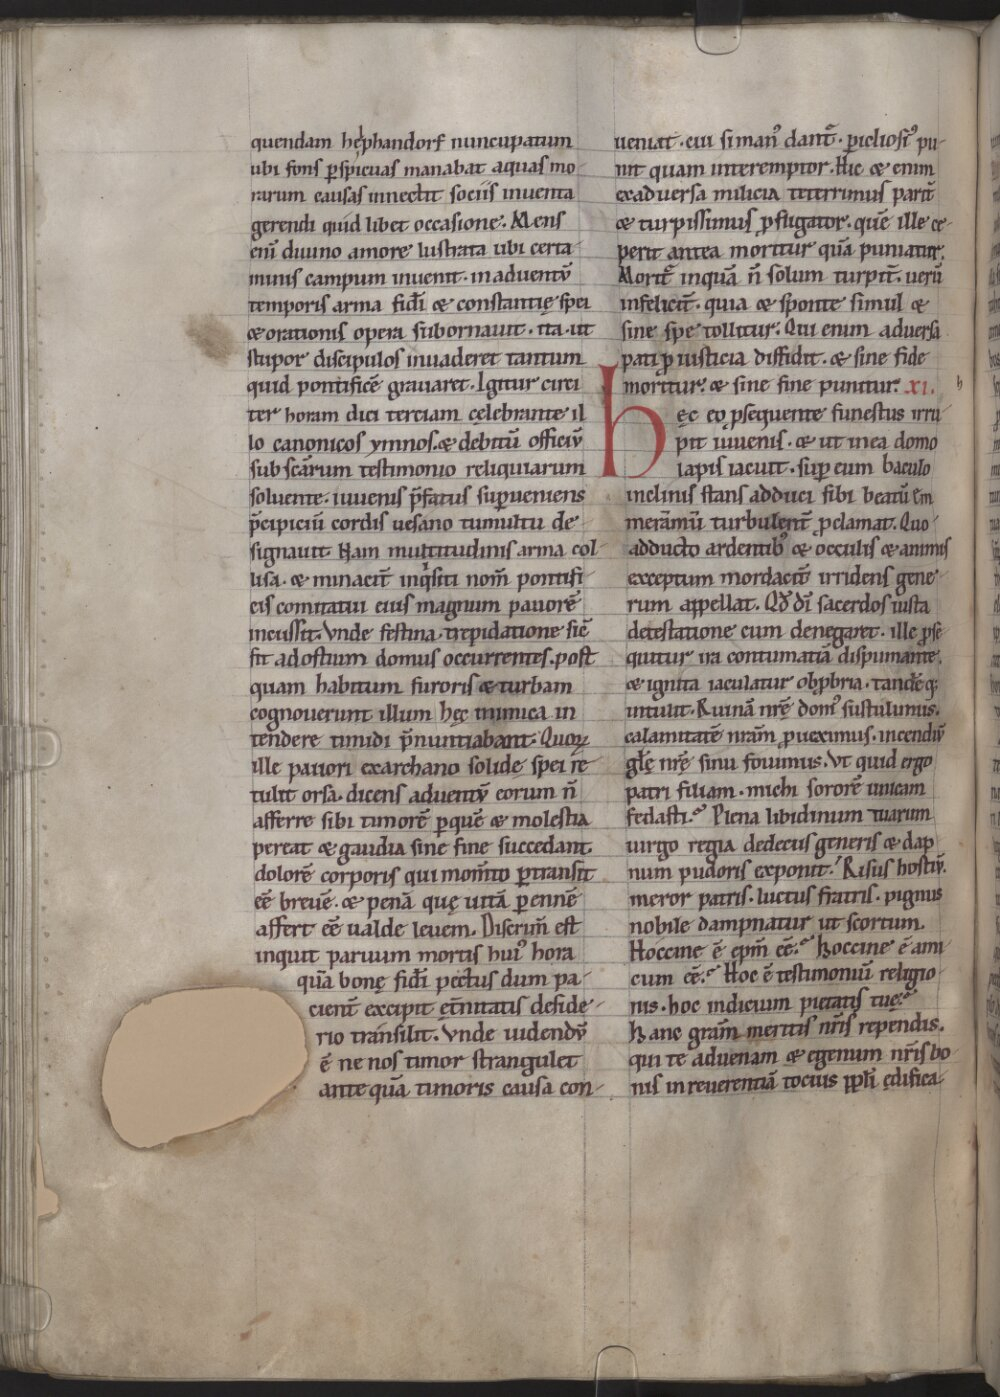 quendam helphandorf nuncupatum
ubi fons p̱spicuas manabat aquas mo-
rarum causas innectit sociis inuenta
gerendi quid libet occasione. Mens
eni̅ diuino amore lustrata ubi certa-
minis campum inuenit. in aduentu̅
temporis arma fidei̅ & constantię spei
& orationis opera subornauit. ita ut
stupor discipulos inuaderet tantum
quid pontifice̅ grauaret. Igitur circi
ter horam diei terciam celebrante il
lo canonicos ymnos. & debitu̅ officiu̅
sub sc̅arum testimonio reliquiarum
soluente. iuuenis p̅fatus sup̱ueniens
p̅cipiciu̅ cordis uesano tumultu de-
signauit. Nam multitudinis arma col-
lisa. & minacit̅ inqͥsiti nom̅ pontifi-
cis comitatui eius magnum pauore̅
incussit. Vnde festina. trepidatione sic̅
fit ad ostium domus occurrentes. post
quam habitum furoris & turbam
cognouerunt illum hęc inimica in
tendere timidi p̅nuntiabant. Quoꝝ
ille pauori exarchano solide spei re-
tulit orsa. dicens aduentu̅ eorum n̅
afferre sibi timore̅ ꝑque̅ & molestia
pereat & gaudia sine fine succedant.
dolore̅ corporis qui mom̅to ꝑtransit
ee̅ breue̅. & pena̅ quę uita̅ ꝑenne̅
affert ee̅ ualde leuem. Discrim̅ est
inquit paruum mortis hui᷒ hora
qua̅ bonę fidei̅ pectus dum pa-
cient̅ excipit et̅nitatis deside-
rio transilit. Vnde uidendu̅
e̅ ne nos timor strangulet
ante qua̅ timoris causa con-
ueniat. cui si man᷒ dant᷑. ꝑiclios᷒ pu-
nit quam interemptor. Hic & enim
ex aduersa milicia teterrimus parit᷑
& turpissimus ꝓfligator. que̅ ille ce-
perit antea moritur qua̅ puniatur.
Morit᷑ inqua̅ n̅ solum turpit̅. ueru̅
infelicit̅. quia & sponte simul &
sine spe tollitur. Qui enim aduersa
pati ꝓ iusticia diffidit. & sine fide
moritur. & sine fine punitur. XI.
Hęc eo ꝓsequente funestus irru
pit iuuenis. & ut in ea domo
lapis iacuit. suꝑ eum baculo
inclinis stans adduci sibi beatu̅ em
mera̅mu̅ turbulent̅ ꝓclamat. Quo-
adducto ardentib᷒ & occulis & animis
exceptum mordacit̅ irridens gene-
rum appellat. Qd̅ di̅ sacerdos iusta
detestatione cum denegaret. ille ꝓse-
quitur ira contumatia̅ dispumante.
& ignita iaculatur obꝓbria. tande̅q;
intulit. Ruina̅ nr̅ę dom᷒ sustulimus.
calamitate̅ nr̅am ꝓueximus. incendiu̅
gl̅ę nr̅ę sinu fouimus. Vt quid ergo
patri filiam. michi sorore̅ unicam
fedasti? Plena libidinum tuarum
uirgo regia dedecus generis & dap-
num pudoris exponit? Risus hostiu̅.
meror patris. luctus fratris. pignus
nobile dampnatur ut scortum.
Hoccine e̅ epm̅ ee̅? Hoccine e̅ ami
cum ee̅? Hoc e̅ testimoniu̅ religio-
nis. hoc indicium pietatis tuę?
Hanc gram̅ meritis nr̅is rependis.
qui te aduenam & egenum nr̅is bo-
nis in reuerentia̅ tocius ppl̅i ędifica-